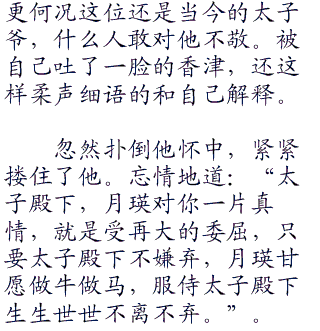 更何况这位还是当今的太子
爷，什么人敢对他不敬。被
自己吐了一脸的香津，还这
样柔声细语的和自己解释。
忽然扑倒他怀中，紧紧
搂住了他。忘情地道：“太
子殿下，月瑛对你一片真
情，就是受再大的委屈，只
要太子殿下不嫌弃，月瑛甘
愿做牛做马，服侍太子殿下
生生世世不离不弃。”。